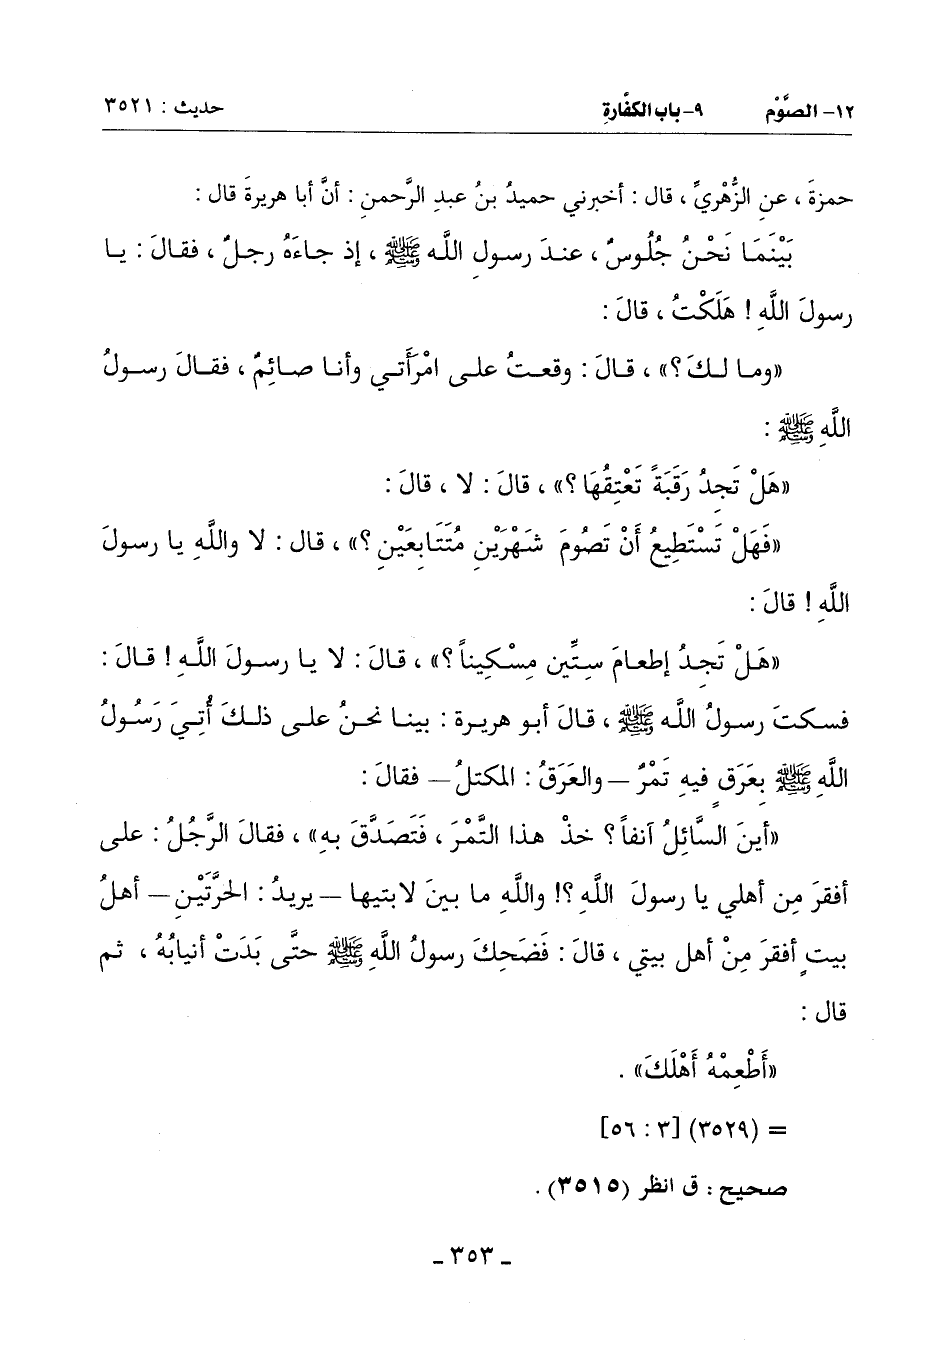 ١٢- الصَّوْم ٩- باب الكفَّارةِ حديث : ٣٥٢١
حمزةَ ، عنِ الزُّهْريِّ ، قال : أخبرني حميدُ بنُ عبدِ الرَّحمنِ : أنَّ أبا هريرةَ قال :
بَيْنَمَا نَحْنُ جُلُوسٌ ، عندَ رسولِ اللَّه ﷺ ، إذ جاءَهُ رجلٌ ، فقالَ : يا
رسولَ اللَّهِ ! هَلَكْتُ ، قالَ :
«وما لكَ ؟» ، قالَ : وقعتُ على امْرَأَتي وأنا صائِمٌ ، فقالَ رسولُ
اللَّهِ ﷺ :
«هَلْ تَجِدُ رَقَبَةً تَعْتِقُهَا ؟» ، قالَ : لا ، قالَ :
«فَهَلْ تَسْتَطِيعُ أَنْ تَصُومَ شَهْرَيْنِ مُتَتَابِعَيْنِ ؟» ، قال : لا واللَّهِ يا رسولَ
اللَّهِ ! قالَ :
«هَلْ تَجِدُ إطعامَ ستِّينِ مِسْكيناً ؟» ، قالَ : لا يا رسولَ اللَّهِ ! قالَ :
فسكتَ رسولُ اللَّه ﷺ ، قالَ أبو هريرة : بينا نحنُ على ذلكَ أُتِيَ رَسُولُ
اللَّهِ ﷺ بِعَرَقٍ فيهِ تَمْرٌ – والعَرَقُ : المكتلُ – فقالَ :
«أينَ السَّائِلُ آنفاً ؟ خذْ هذا التَّمْرَ ، فَتَصَدَّقَ بِهِ» ، فقالَ الرَّجُلُ : على
أفقرَ مِن أهلي يا رسولَ اللَّه ؟! واللَّهِ ما بينَ لابتيها – يريدُ : الحرَّتَيْنِ – أهلُ
بيتٍ أفقرَ مِنْ أهلِ بيتي ، قالَ : فَضَحِكَ رسولُ اللَّهِ ﷺ حتَّى بَدَتْ أنيابُهُ ، ثم
قال :
«أَطْعِمْهُ أَهْلَكَ» .
= (٣٥٢٩) [٣ : ٥٦]
صحيح : ق انظر (٣٥١٥) .
- ٣٥٣ -